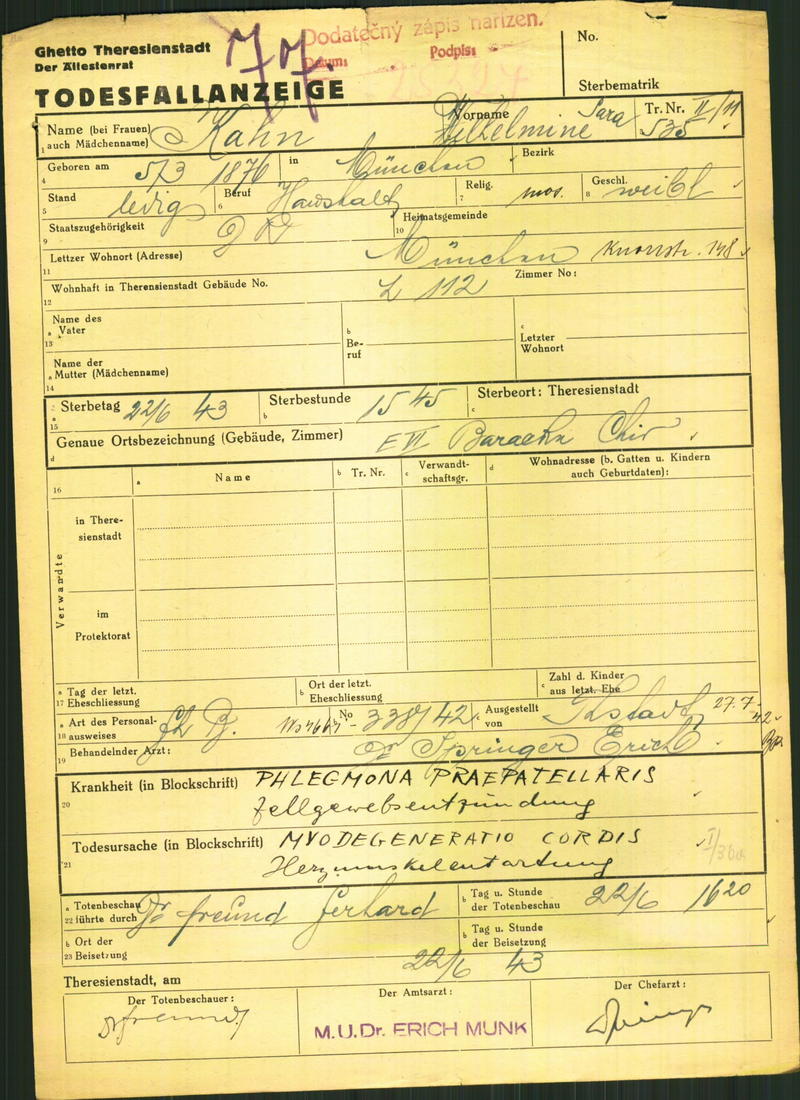 Ghetto Theresienstadt
Der Ältestenrat
TODESFALLANZEIGE
Dodatečný zápis nařízen.
Datum: Podpis:
No.
Sterbematrik
Name (bei Frauen auch Mädchenname) Kahn
Vorname Wilhelmine Sara
Tr. Nr. II/11
535
Geboren am 5/3 1876 in München Bezirk
Stand ledig Beruf Haushalt Relig. mos. Geschl. weibl
Staatszugehörigkeit DR Heimatsgemeinde
Letzter Wohnort (Adresse) München Knorrstr. 148
Wohnhaft in Theresienstadt Gebäude No. L 112 Zimmer No:
Name des Vater
Beruf
Letzter Wohnort
Name der Mutter (Mädchenname)
Sterbetag 22/6 43 Sterbestunde 15 45 Sterbeort: Theresienstadt
Genaue Ortsbezeichnung (Gebäude, Zimmer) E VI Baracke Chir
16 a Name b Tr. Nr. c Verwandtschaftsgr. d Wohnadresse (b. Gatten u. Kindern auch Geburtdaten):
Verwandte
in Theresienstadt
im Protektorat
Tag der letzt. Eheschliessung
Ort der letzt. Eheschliessung
Zahl d. Kinder aus letzt. Ehe
Art des Personalausweises No 338/42 Ausgestellt von Thstadt, 27.7.42
Behandelnder Arzt: Dr Springer Erich
Krankheit (in Blockschrift) PHLEGMONA PRAEPATELLARIS
Zellgewebsentzündung
Todesursache (in Blockschrift) MYODEGENERATIO CORDIS
Herzmuskelentartung
Totenbeschau führte durch Dr Freund Gerhard Tag u. Stunde der Totenbeschau 22/6 16 20
Ort der Beisetzung
Tag u. Stunde der Beisetzung
Theresienstadt, am 22/6 43
Der Totenbeschauer: Der Amtsarzt: Der Chefarzt:
Dr Freund
M.U.Dr. ERICH MUNK